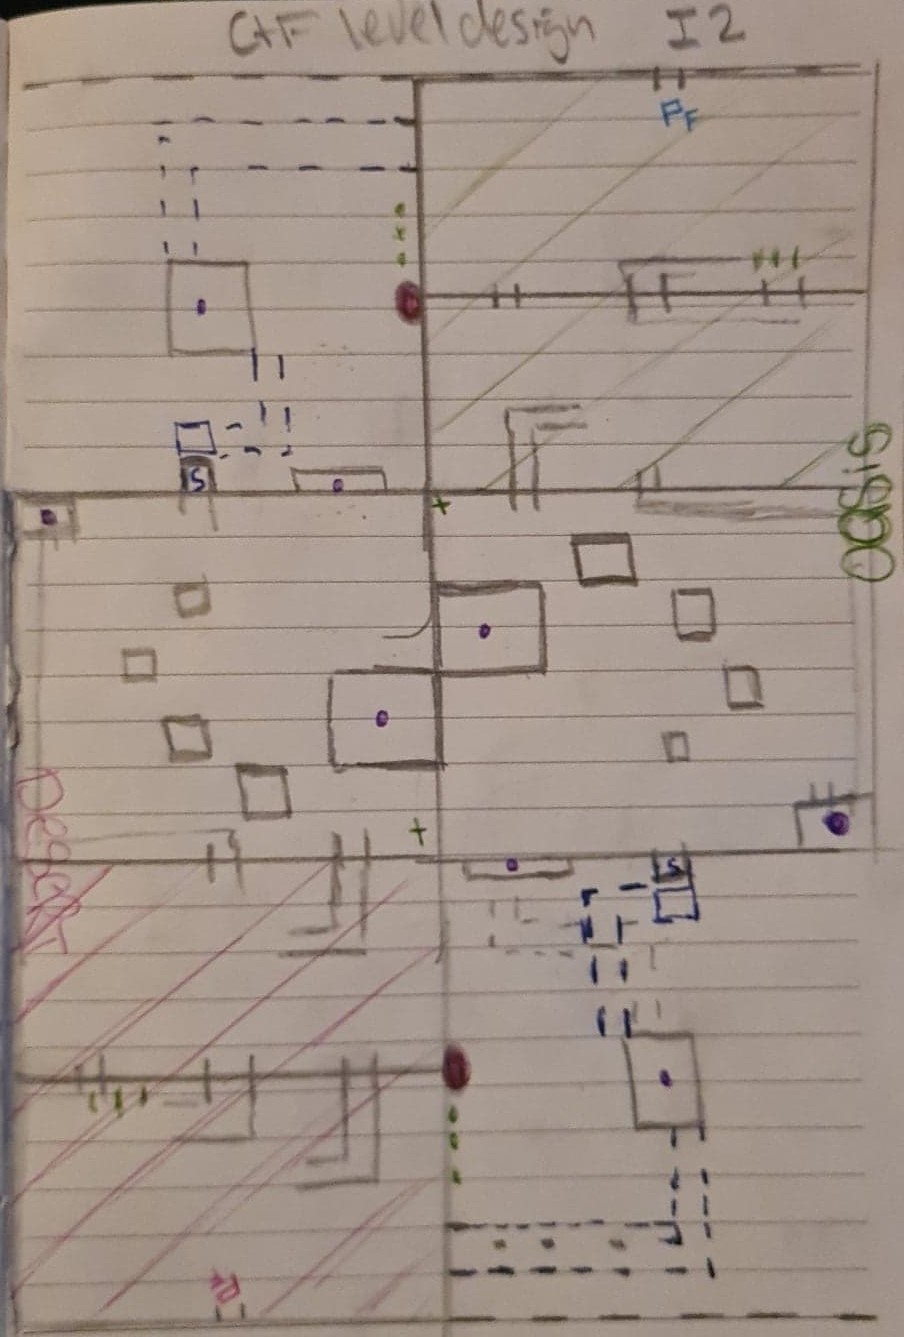 CtF level design I2
PF
S
OASIS
DESERT
S